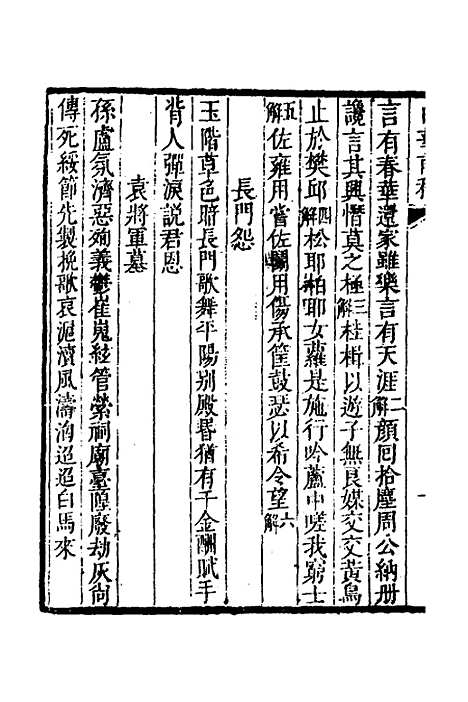 言有春華還家雖樂言有天涯二解顏囘拾塵周公納册
讒言其興憯莫之極三解桂楫以遊子無良媒交交黃鳥
止於樊邱四解松耶柏耶女蘿是施行吟蘆中嗟我窮士
五解佐雍用嘗佐鬭用傷承筐鼓瑟以希令望六解
長門怨
玉階草色暗長門歌舞平陽別殿春猶有千金酬賦手
背人彈淚説君恩
袁將軍墓
孫盧氛濟惡殉義鬱崔嵬絃管縈祠廟臺隍廢劫灰尙
傳死綏節先製挽歌哀滬瀆風濤洶迢迢白馬來